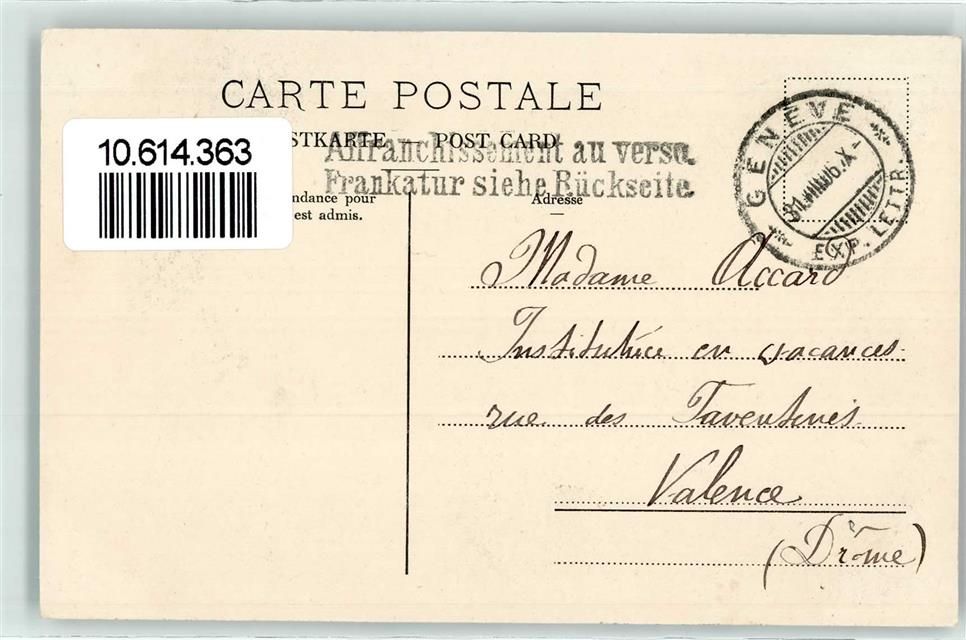 CARTE POSTALE
STKARTE — POST CARD
Affranchissement au verso.
Frankatur siehe Rückseite.
10.614.363
ndance pour
est admis.
Adresse
GENÈVE
31.VIII.06.X-
EXP. LETTR.
Madame Accard
Institutrice en vacances
rue des
Valence
(Drôme)